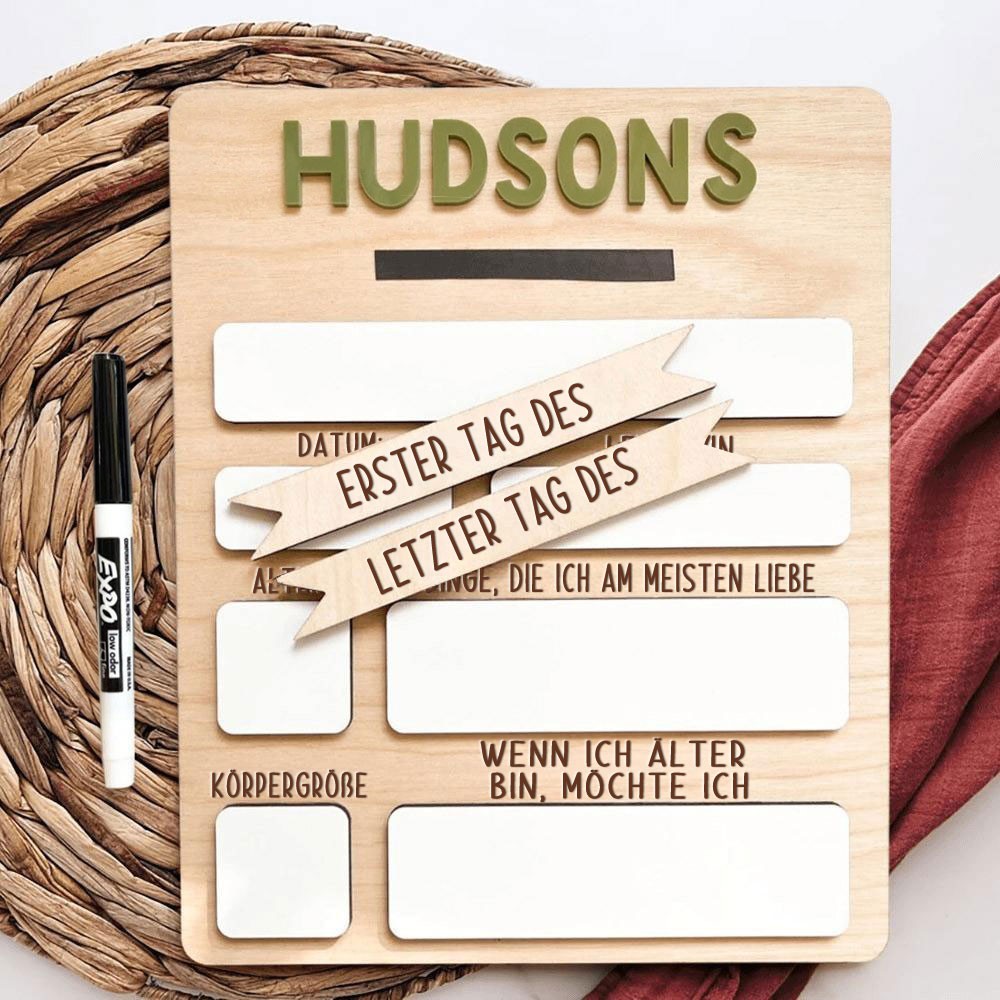 HUDSONS
DATUM:
ERSTER TAG DES
LETZTER TAG DES
DINGE, DIE ICH AM MEISTEN LIEBE
WENN ICH ÄLTER
BIN, MÖCHTE ICH
KÖRPERGRÖßE
EXPO
low odor